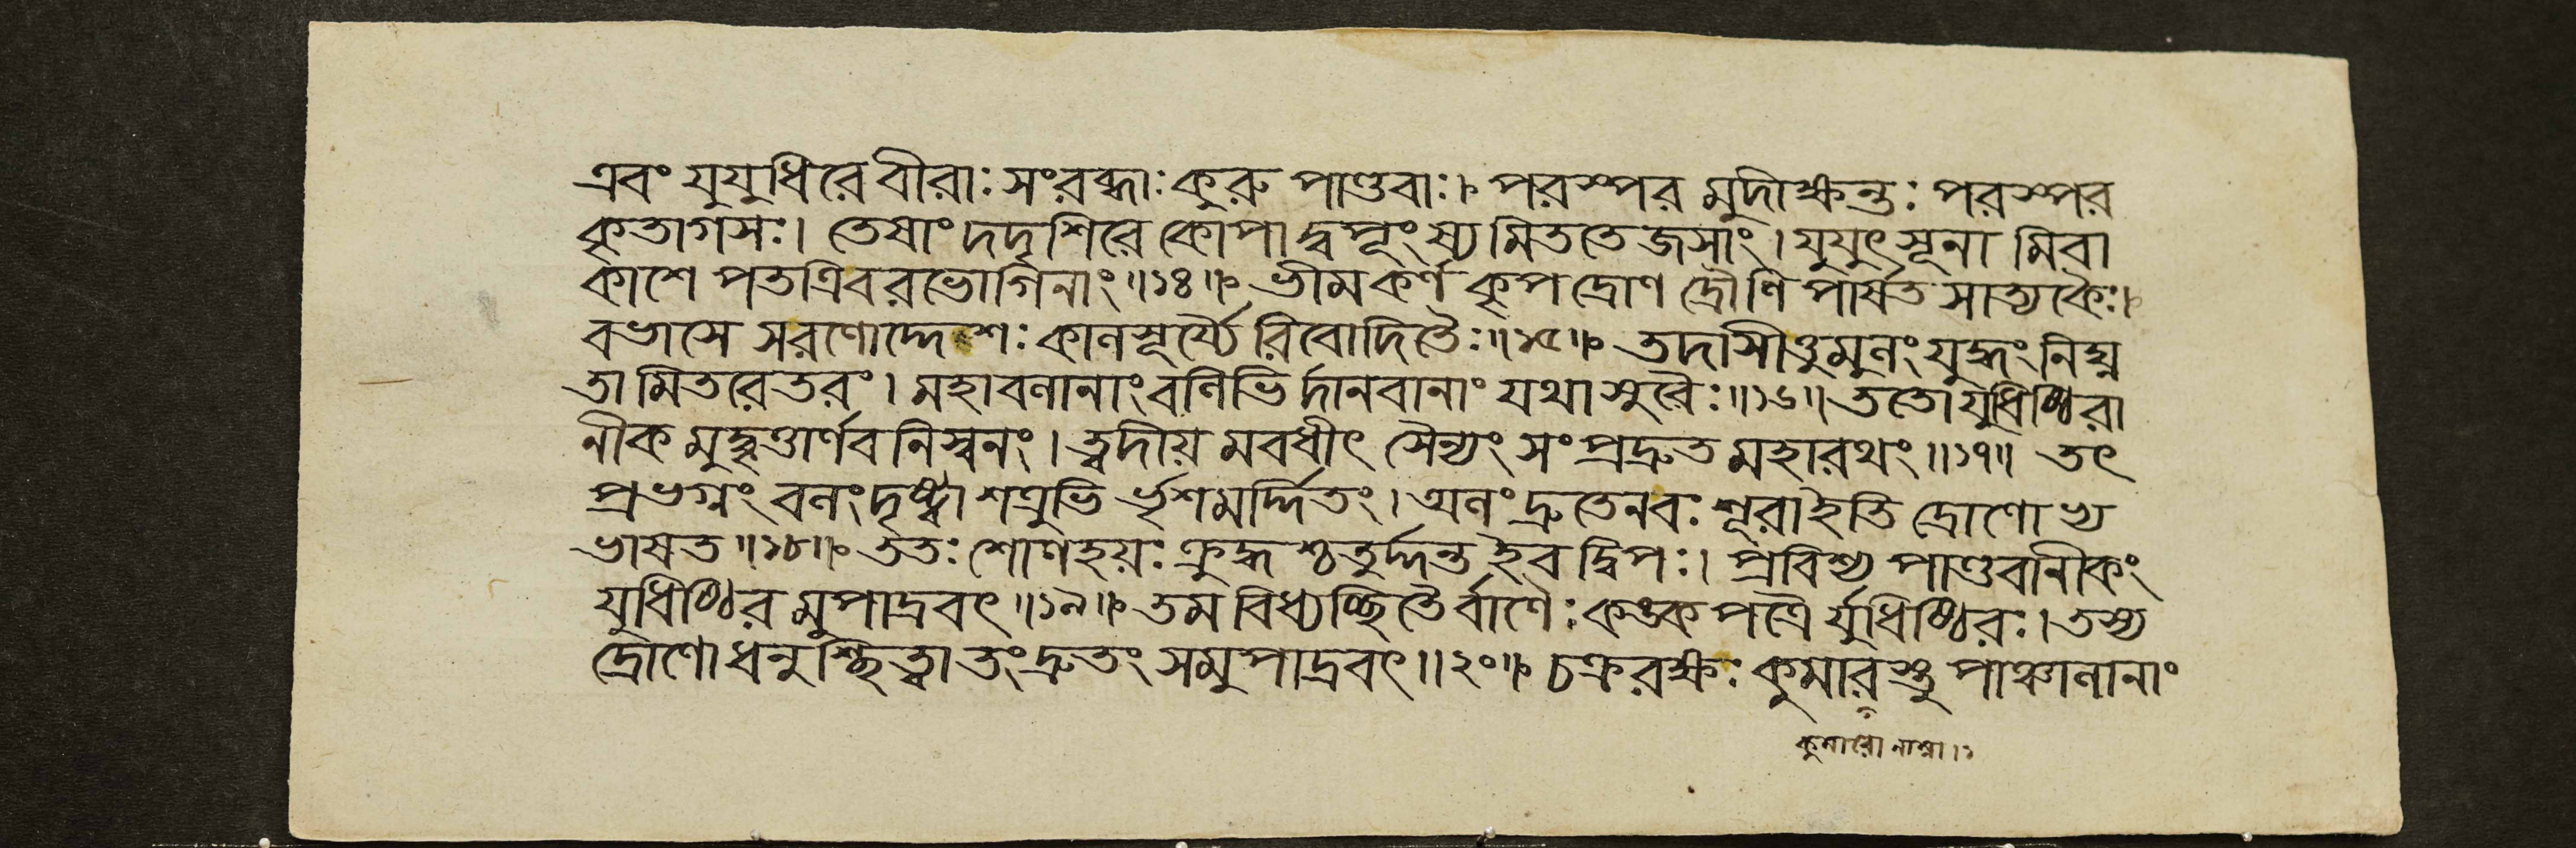 এবং যুযুধিরে বীরাঃ সংরব্ধাঃ কুরু পাণ্ডবাঃ। পরস্পর মুদীক্ষন্তঃ পরস্পর
কৃতাগসঃ। তেষাং দদৃশিরে কোপাদ্বপূংষ্যমিততেজসাং। যুযুৎসূনা মিবা
কাশে পতত্রিবরভোগিনাং॥১৪॥ ভীমকর্ণ কৃপদ্রোণ দ্রৌণি পার্ষত সাত্যকৈঃ।
বভাসে সরণোদ্দেশঃ কালসূর্য্যৈ রিবোদিতৈঃ॥১৫॥ তদাসীত্তুমুলং যুদ্ধং নিঘ্ন
তা মিতরেতরং। মহাবলানাং বলিভি র্দানবানাং যথাসুরৈঃ॥১৬॥ ততো যুধিষ্ঠিরা
নীক মুদ্ধূতার্ণব নিস্বনং। ত্বদীয় মবধীৎ সৈন্যং সংপ্রদ্রুত মহারথং॥১৭॥ তৎ
প্রভগ্নং বলং দৃষ্ট্বা শত্রুভি র্ভৃশমর্দ্দিতং। অলং দ্রুতেনবঃ শূরাইতি দ্রোণো ভ্য
ভাষত॥১৮॥ ততঃ শোণহয়ঃ ক্রুদ্ধ শ্চতুর্দ্দন্ত ইব দ্বিপঃ। প্রবিশ্য পাণ্ডবানীকং
যুধিষ্ঠির মুপাদ্রবৎ॥১৯॥ তমবিধ্যচ্ছিতৈর্বাণৈঃ কঙ্কপত্রৈ র্যুধিষ্ঠিরঃ। তস্য
দ্রোণো ধনুশ্ছিত্বা তং দ্রুতং সমুপাদ্রবৎ॥২০॥ চক্ররক্ষঃ কুমারস্তু পাঞ্চালানাং
কুমারো নাম্না।১